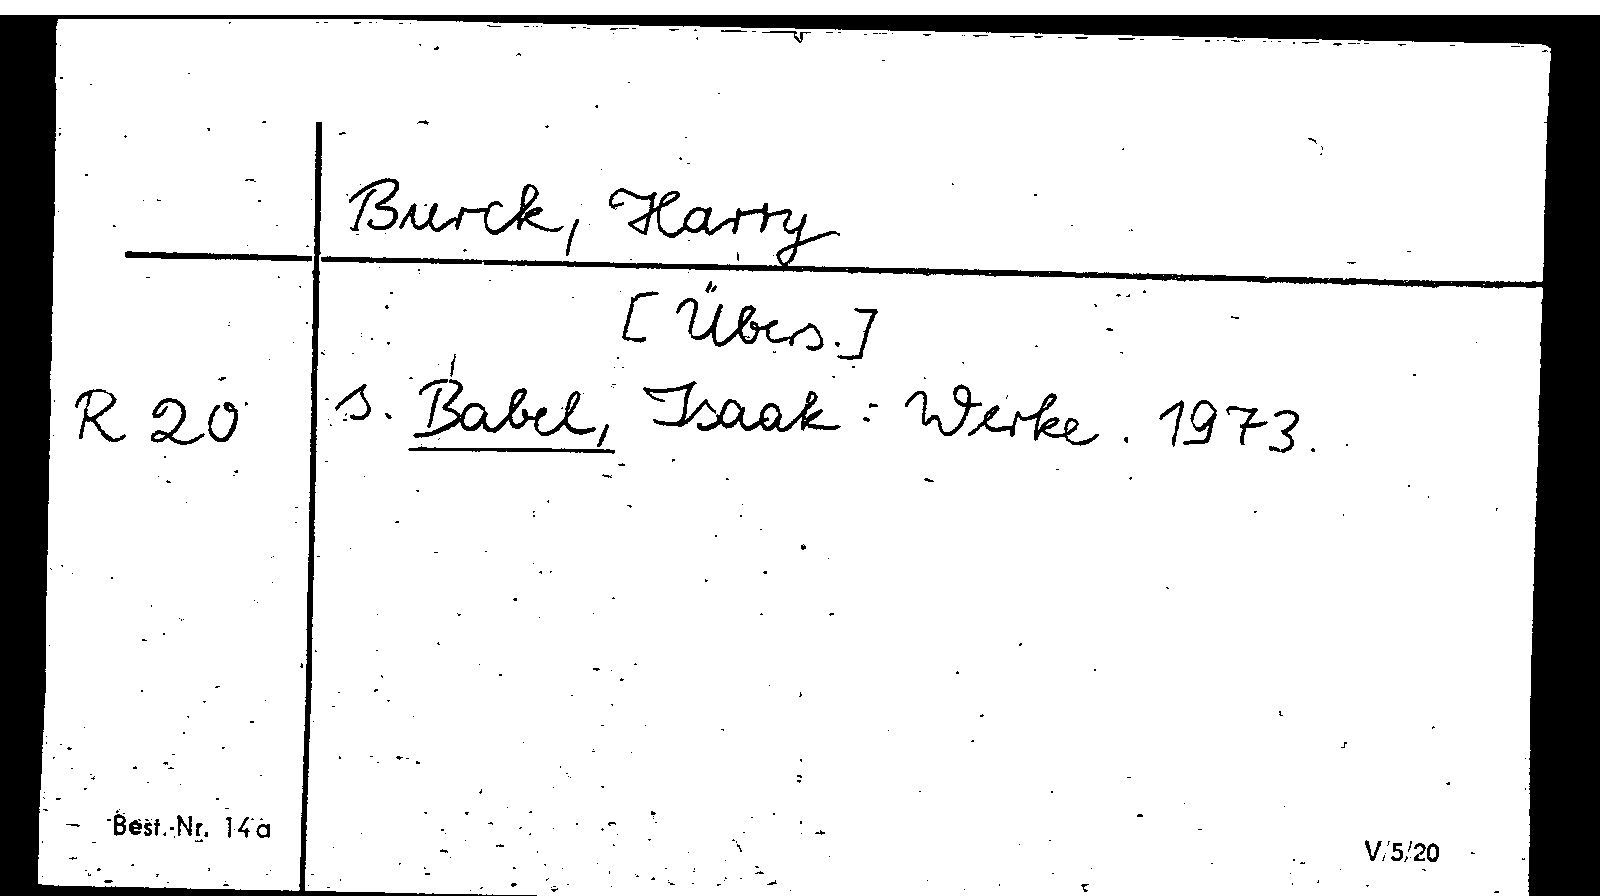 Burck, Harry
[Übers.]
R 20 s. Babel, Isaak: Werke. 1973.
Best.-Nr. 14a
V/5/20